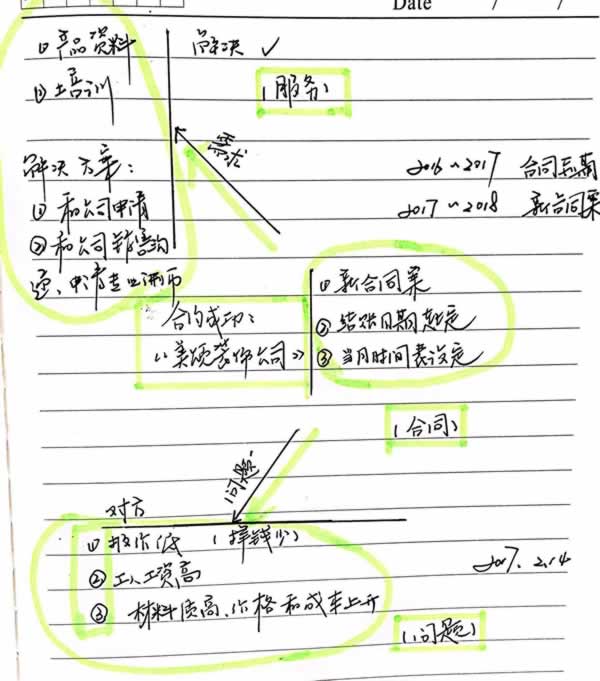 Date / /
① 产品资料
解决 ✓
② 培训
(服务)
需求
解决方案:
2016~2017 合同长期
① 和公司申请
2017~2018 新合同案
② 和公司销售沟
通、申请专业讲师
① 新合同案
合约成功:
② 结账日期起定
《美颂装饰公司》
③ 当月时间表设定
(合同)
问题:
对方
① 报价低 (择钱少)
② 工人工资高
2017. 2.14
③ 材料质高、价格和成本上升
(问题)